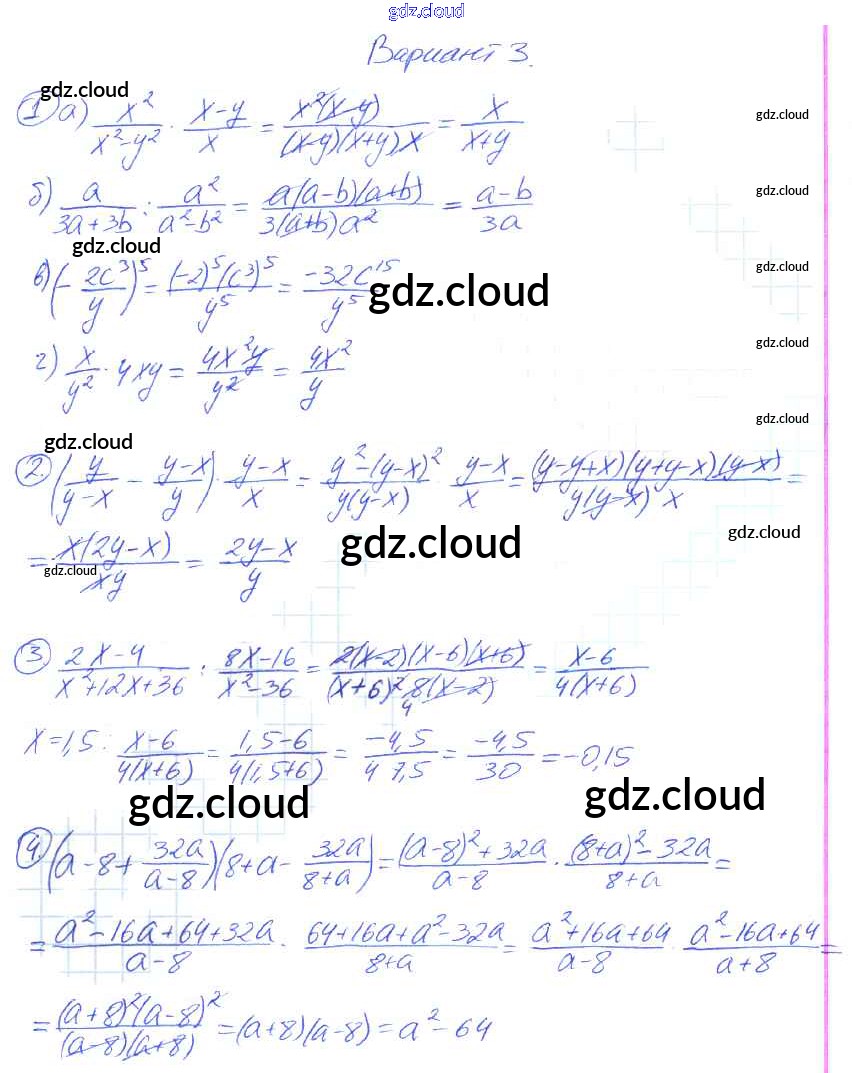 gdz.cloud
Вариант 3.
gdz.cloud
① а) x²/(x²-y²) · (x-y)/x = x²(x-y)/((x-y)(x+y)x) = x/(x+y)
gdz.cloud
б) a/(3a+3b) : a²/(a²-b²) = a(a-b)(a+b)/(3(a+b)a²) = (a-b)/3a
gdz.cloud
gdz.cloud
в) (-2c³/y)⁵ = (-2)⁵(c³)⁵/y⁵ = -32c¹⁵/y⁵
gdz.cloud
gdz.cloud
г) x/y² · 4xy = 4x²y/y² = 4x²/y
gdz.cloud
gdz.cloud
gdz.cloud
② (y/(y-x) - (y-x)/y) · (y-x)/x = (y²-(y-x)²)/(y(y-x)) · (y-x)/x = (y-y+x)(y+y-x)(y-x)/(y(y-x) x) =
= x(2y-x)/xy = (2y-x)/y
gdz.cloud
gdz.cloud
gdz.cloud
③ (2x-4)/(x²+12x+36) : (8x-16)/(x²-36) = 2(x-2)(x-6)(x+6)/((x+6)² 8(x-2)) 4 = (x-6)/(4(x+6))
x=1,5: (x-6)/(4(x+6)) = (1,5-6)/(4(1,5+6)) = -4,5/(4·7,5) = -4,5/30 = -0,15
gdz.cloud
gdz.cloud
④ (a-8+32a/(a-8))(8+a-32a/(8+a)) = ((a-8)²+32a)/(a-8) · ((8+a)²-32a)/(8+a) =
= (a²-16a+64+32a)/(a-8) · (64+16a+a²-32a)/(8+a) = (a²+16a+64)/(a-8) · (a²-16a+64)/(a+8) =
= (a+8)²(a-8)²/((a-8)(a+8)) = (a+8)(a-8) = a²-64